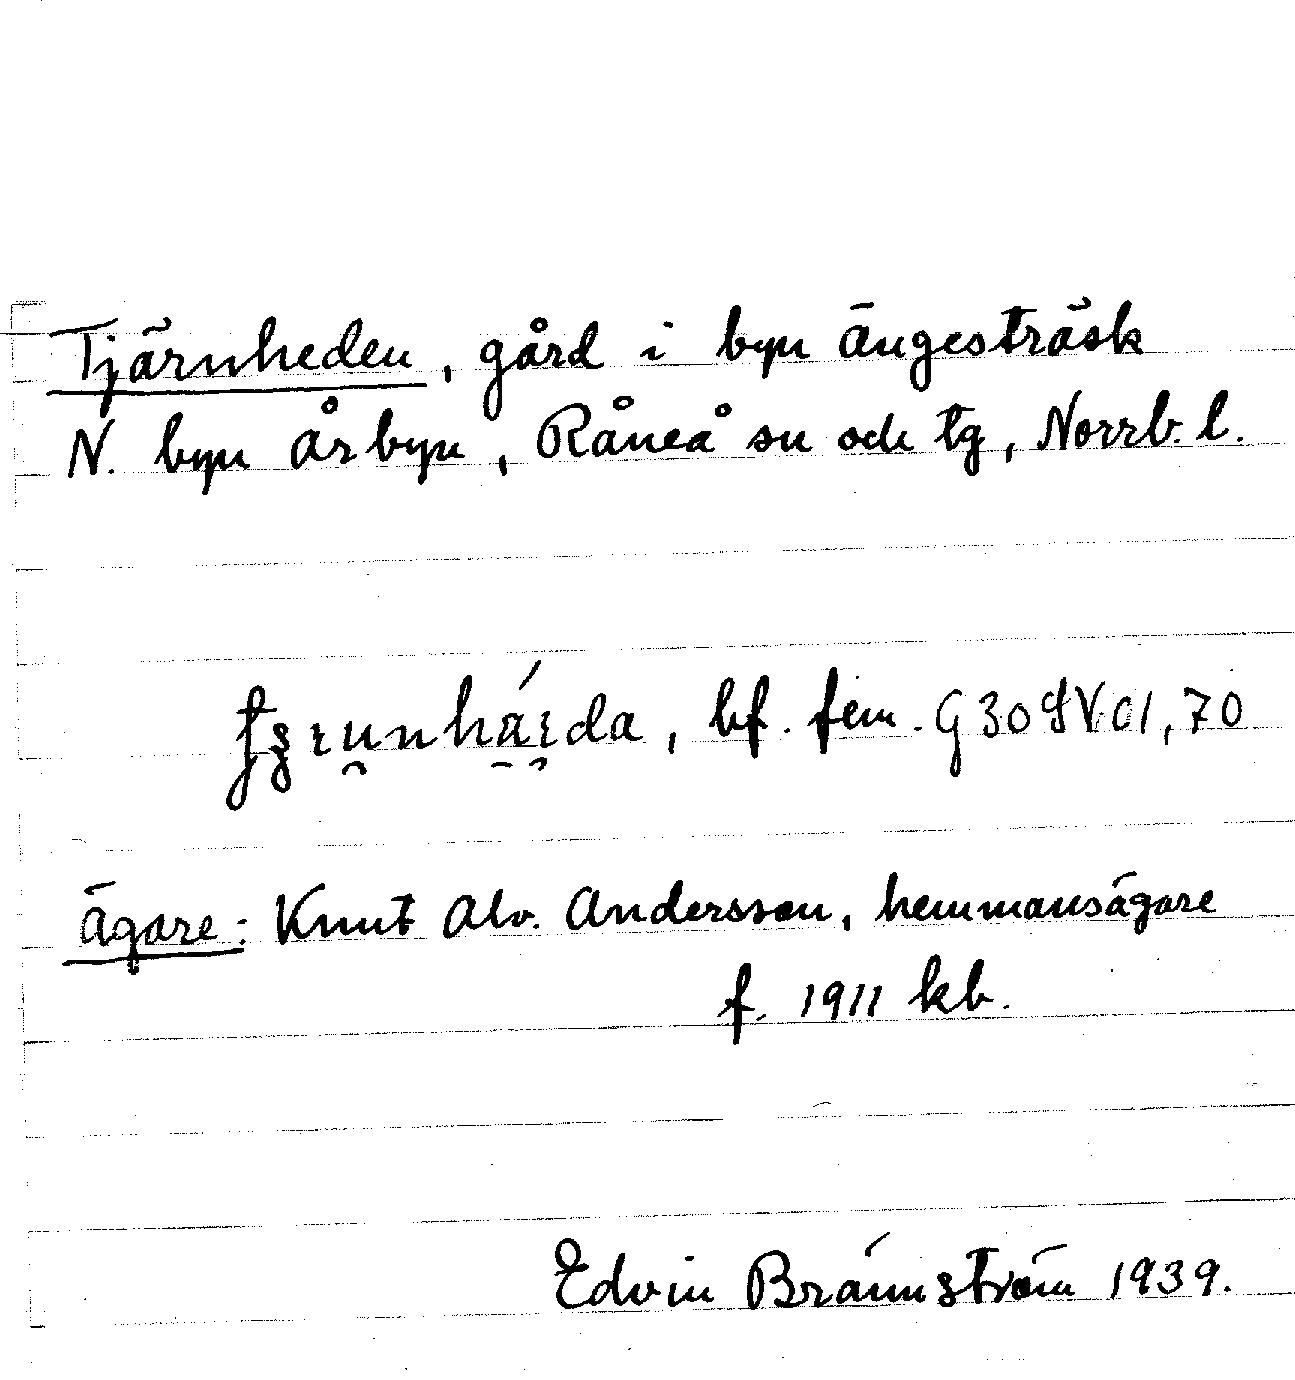 Tjärnheden, gård i byn Ängesträsk
N. byn Årbyn, Råneå sn och tg, Norrb. l.
bf. fem. G30SV01,70
Ägare: Knut Alv. Andersson, hemmansägare
f. 1911 kb.
Edvin Brännström 1939.